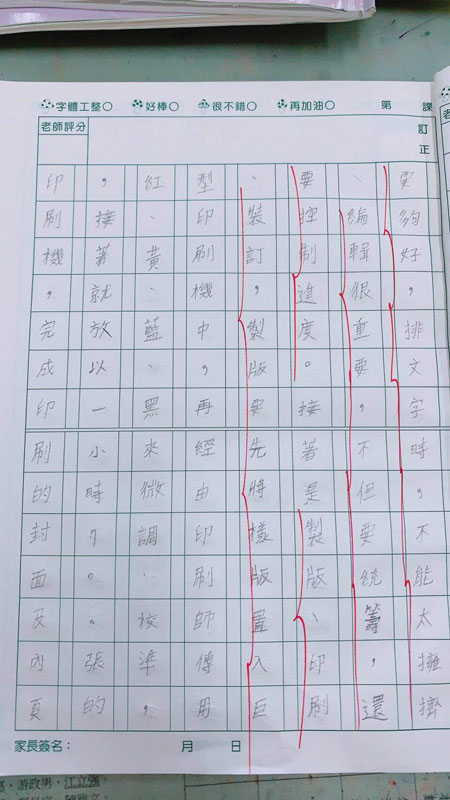 字體工整○ 好棒○ 很不錯○ 再加油○ 第 課
老師評分
訂正
要夠好，排文字時，不能太擁擠
、編輯很重要，不但要統籌，還
要控制進度。接著是製版、印刷
、裝訂，製版要先將樣版置入巨
型印刷機中，再經由印刷師傅用
紅、黃、藍、黑來微調、校準，
，接著就放以一小時700張的
印刷機，完成印刷的封面及內頁
家長簽名： 月 日
游政男、江立強